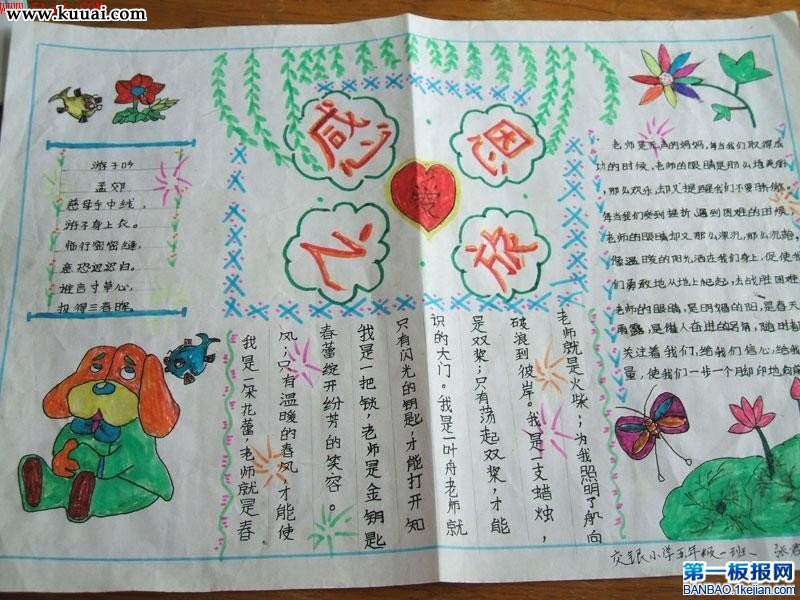 www.kuuai.com
感恩
欣
愛
游子吟
孟郊
慈母手中线，
游子身上衣。
临行密密缝，
意恐迟迟归。
谁言寸草心，
报得三春晖。
我是一朵花蕾，老师就是春
风；只有温暖的春风，才能使
春蕾绽开纷芳的笑容。
我是一把锁，老师是金钥匙
只有闪光的钥匙，才能打开知
识的大门。我是一叶舟老师就
是双桨；只有荡起双桨，才能
破浪到彼岸。我是一支蜡烛，
老师就是火柴；为我照明了航向
老师是无声的妈妈，每当我们取得成
功的时候，老师的眼睛是那么地美丽
那么欢乐，去却又提醒我们不要骄傲。
每当我们受到挫折，遇到困难的时候，
老师的眼睛却又那么深沉，那么沉静
像温暖的阳光洒在我们身上，促使我
们勇敢地从地上爬起，去战胜困难
老师的眼睛，是明媚的阳，是春天
雨露，是催人奋进的号角，随时都
关注着我们，给我们信心，给我们
量，使我们一步一个脚印地向前
交银小学五年级一班、张
第一板报网
BANBAO.1kejian.com